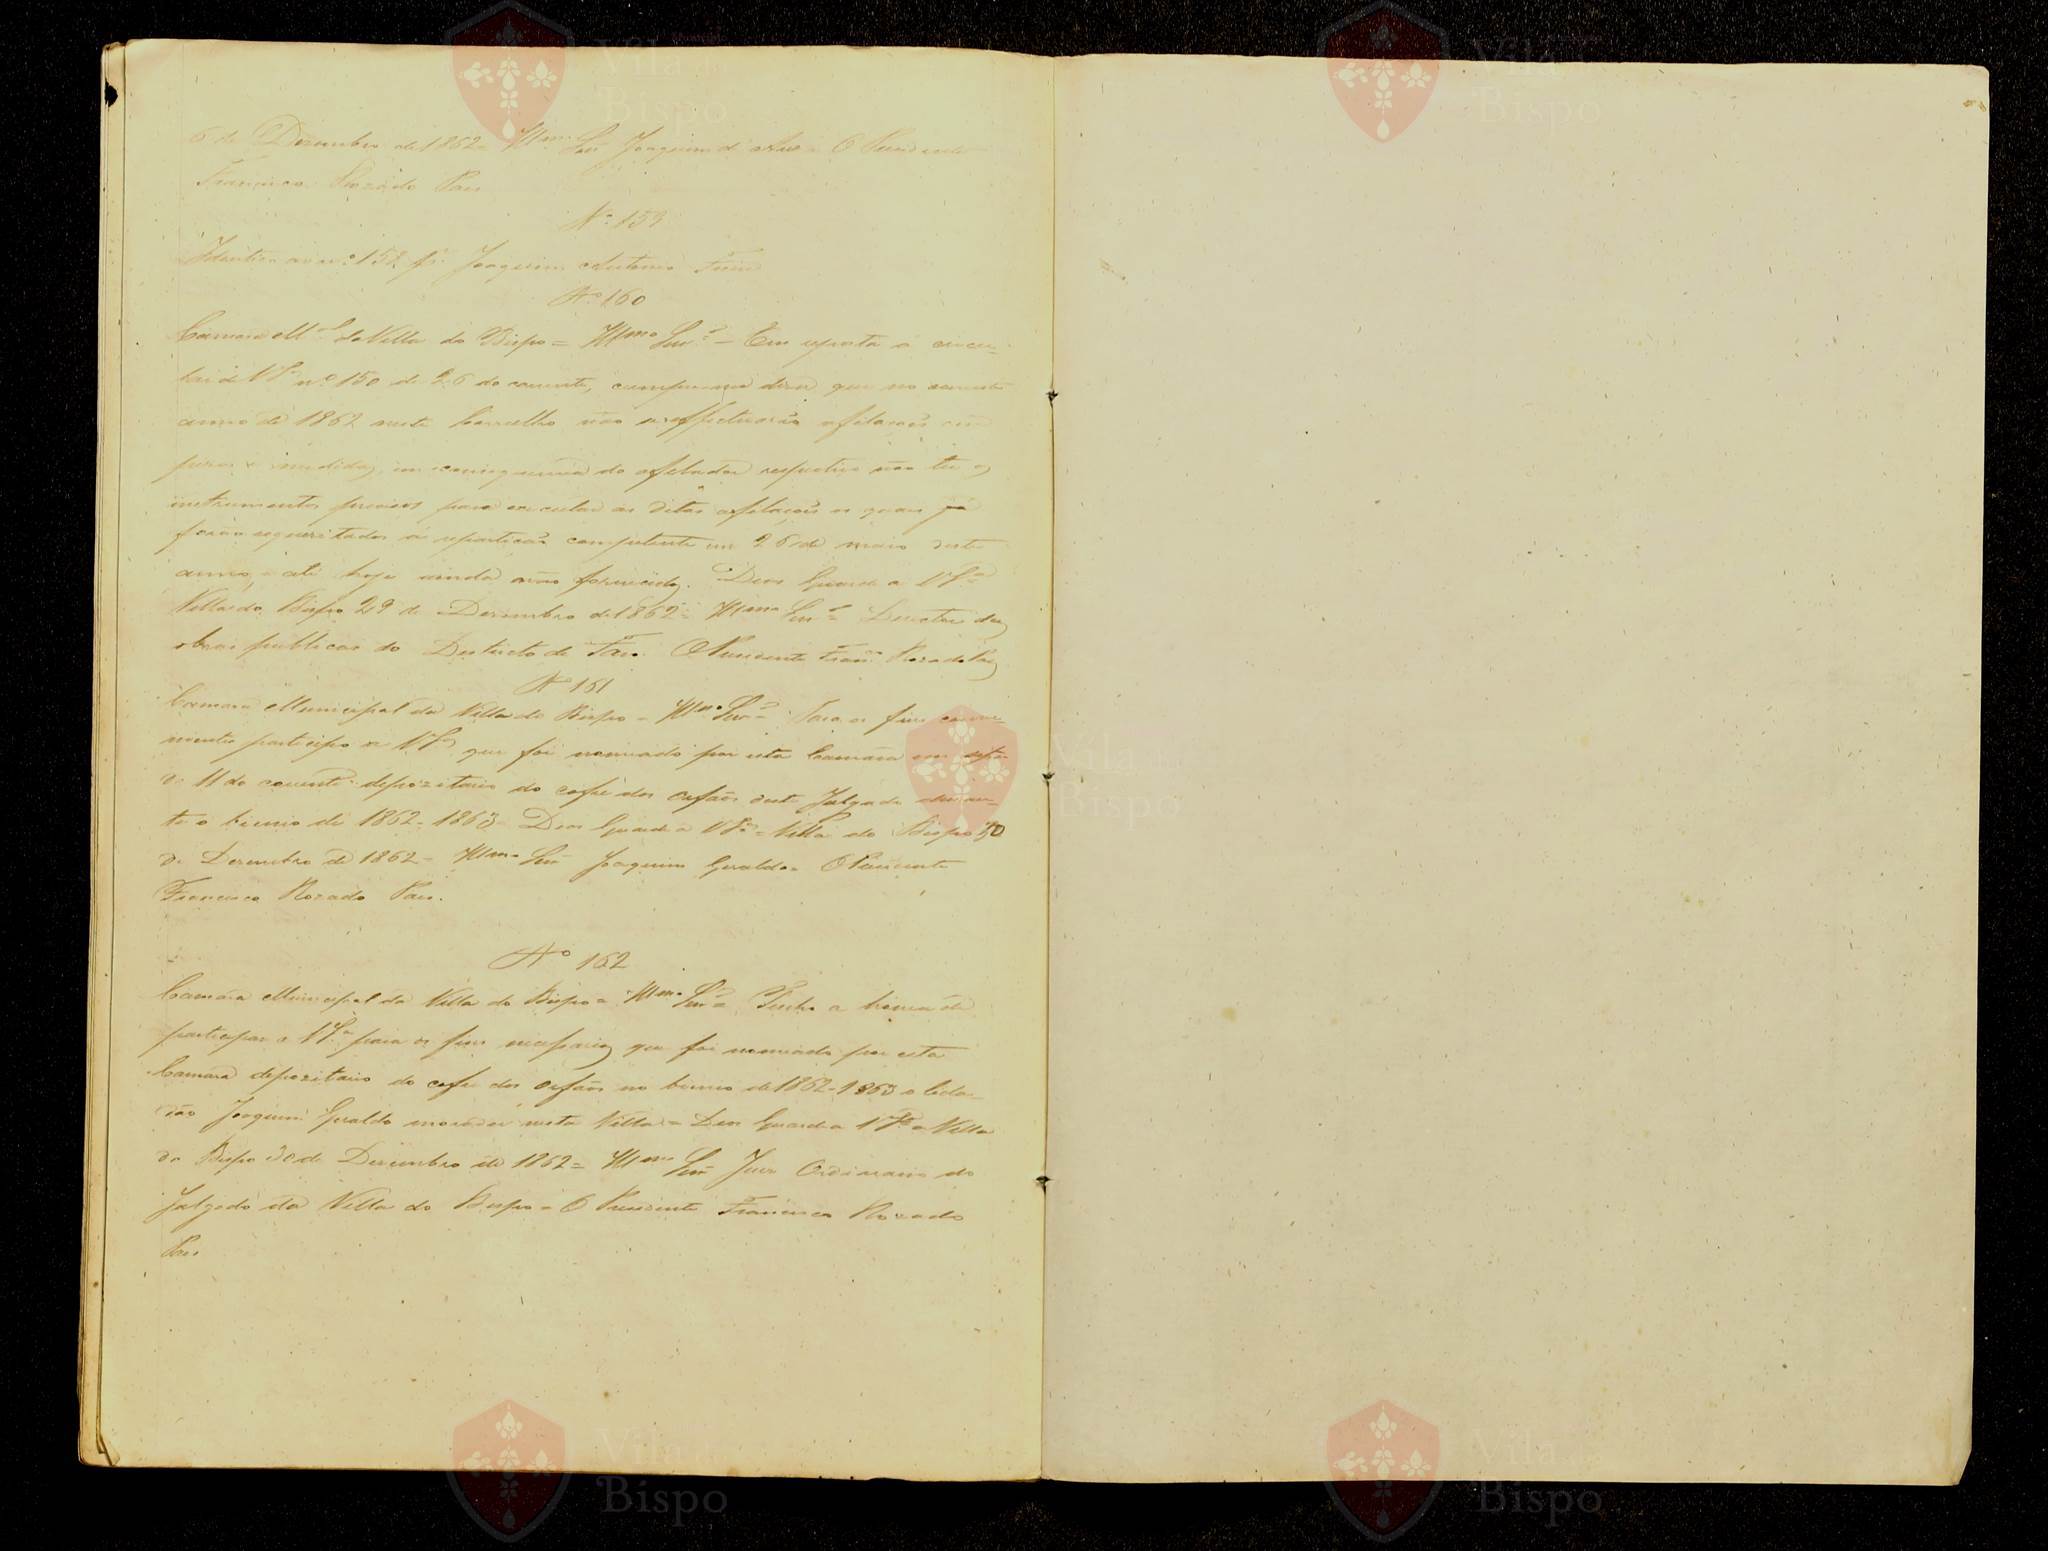 6 de Dezembro de 1862 = Illmo Snr Joaquim de = O Presidente
Francisco Rozado Paes
Nº 159
Identico ao nº 158 pª Joaquim Antonio
Nº 160
Camara Mal da Villa do Bispo = Illmo Snr = Em reposta á circu-
lar de VSª nº 150 de 26 do corrente, cumpre-me dizer que no corrente
anno de 1862 neste Concelho não se effectuarão afilações em
pezos e medidas, em consequencia do afilador respectivo não ter os
instrumentos precisos para executar as ditas afilações os quaes já
forão requezitados á repartição competente em 26 de maio deste
anno, e até hoje ainda não fornecidos. Deos Guarde a VSª
Villa do Bispo 29 de Dezembro de 1862 = Illmo Snr = Director das
obras publicas do Destricto de Faro. O Presidente Franco Rozado Paes
Nº 161
Camara Municipal da Villa do Bispo = Illmo Snr = Para os fins conve-
nientes participo a VSª que foi nomeado por esta Camara em
de 11 do corrente depozitario do cofre dos orfãos deste Julgado duran-
te o bienio de 1862-1863 = Deos Guarde a VSª = Villa do Bispo 30
de Dezembro de 1862 = Illmo Snr Joaquim Geraldo = O Presidente
Francisco Rozado Paes.
Nº 162
Camara Municipal da Villa do Bispo = Illmo Snr = Tenho a honra de
participar a VSª para os fins necessarios que foi nomeado por esta
Camara depozitario do cofre dos orfãos no bienio de 1862-1863 o Cida-
dão Joaquim Geraldo morador nesta Villa = Deos Guarde a VSª = Villa
do Bispo 30 de Dezembro de 1862 = Illmo Snr Juiz Ordinario do
Julgado da Villa do Bispo = O Presidente Francisco Rozado
Paes
Vila do
Bispo